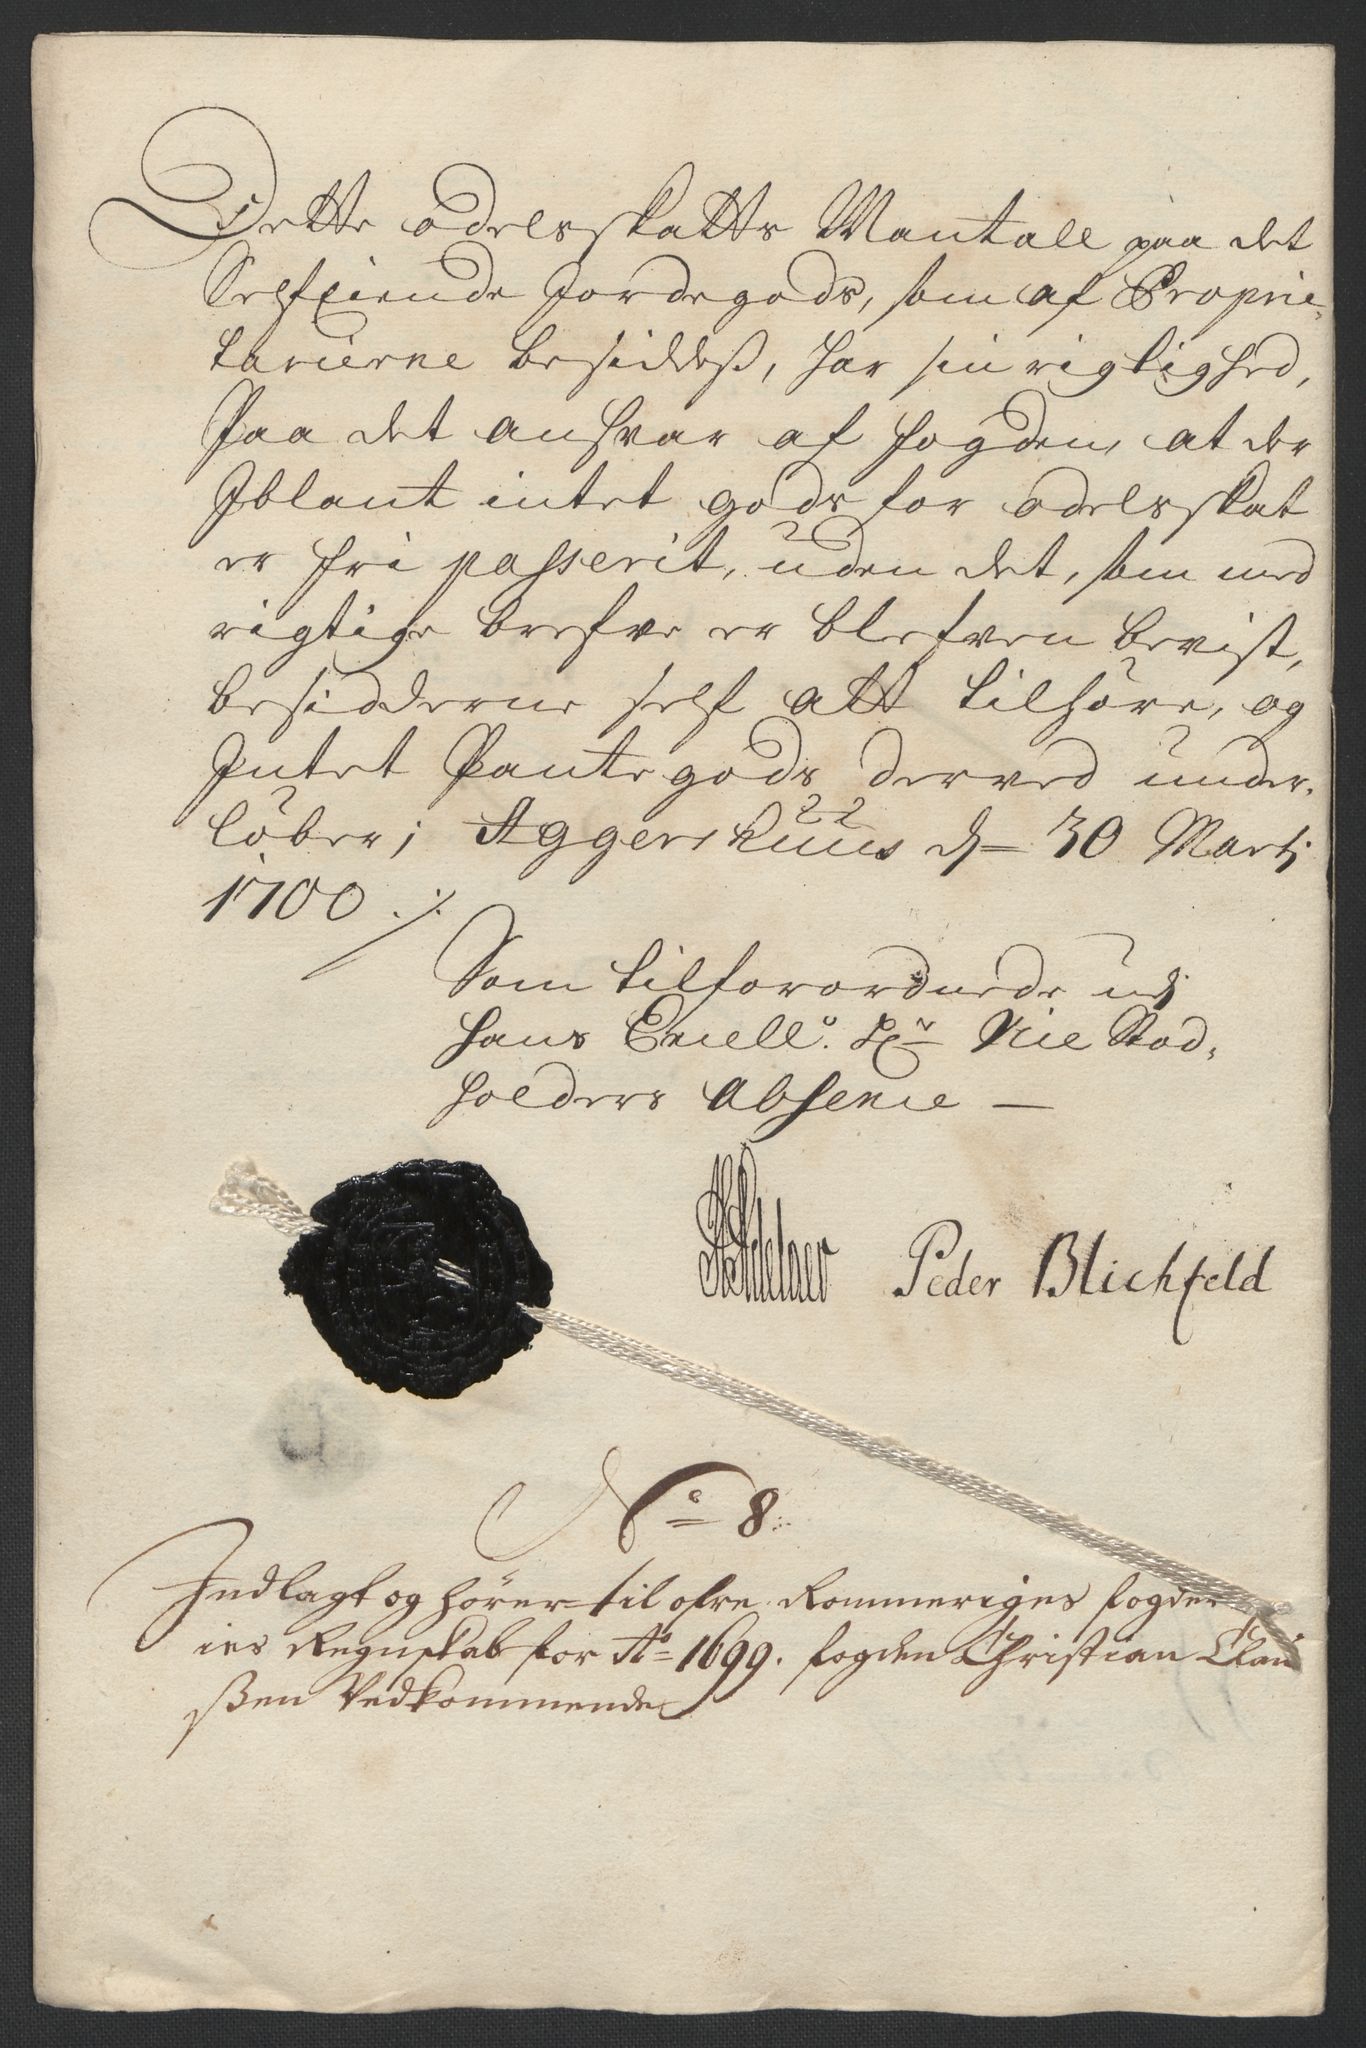 Dette odelsskatts Mantall paa det
Selfeiende Jordegods, som af Proprie-
tarierne besiddeß, har sin rigtighed,
Paa det ansvar af fogden, at der
Iblant intet gods for odelsskat
er fri passerit, uden det, som med
rigtige brefve er blefven bevist,
besidderne self att tilhøre, og
Intet Pantegods derved under-
løber; Aggershuus d 30 Marti
1700 ./.
Som tilforordnede udj
hans Excell. Hr Vice Stad-
holders Absence —
Adelaer Peder Blichfeld
No 8.
Indlagt og hører til ofre Rommeriges fogder
ies Regnskab for Ao 1699. fogden Christian Clau
ßen Vedkommende